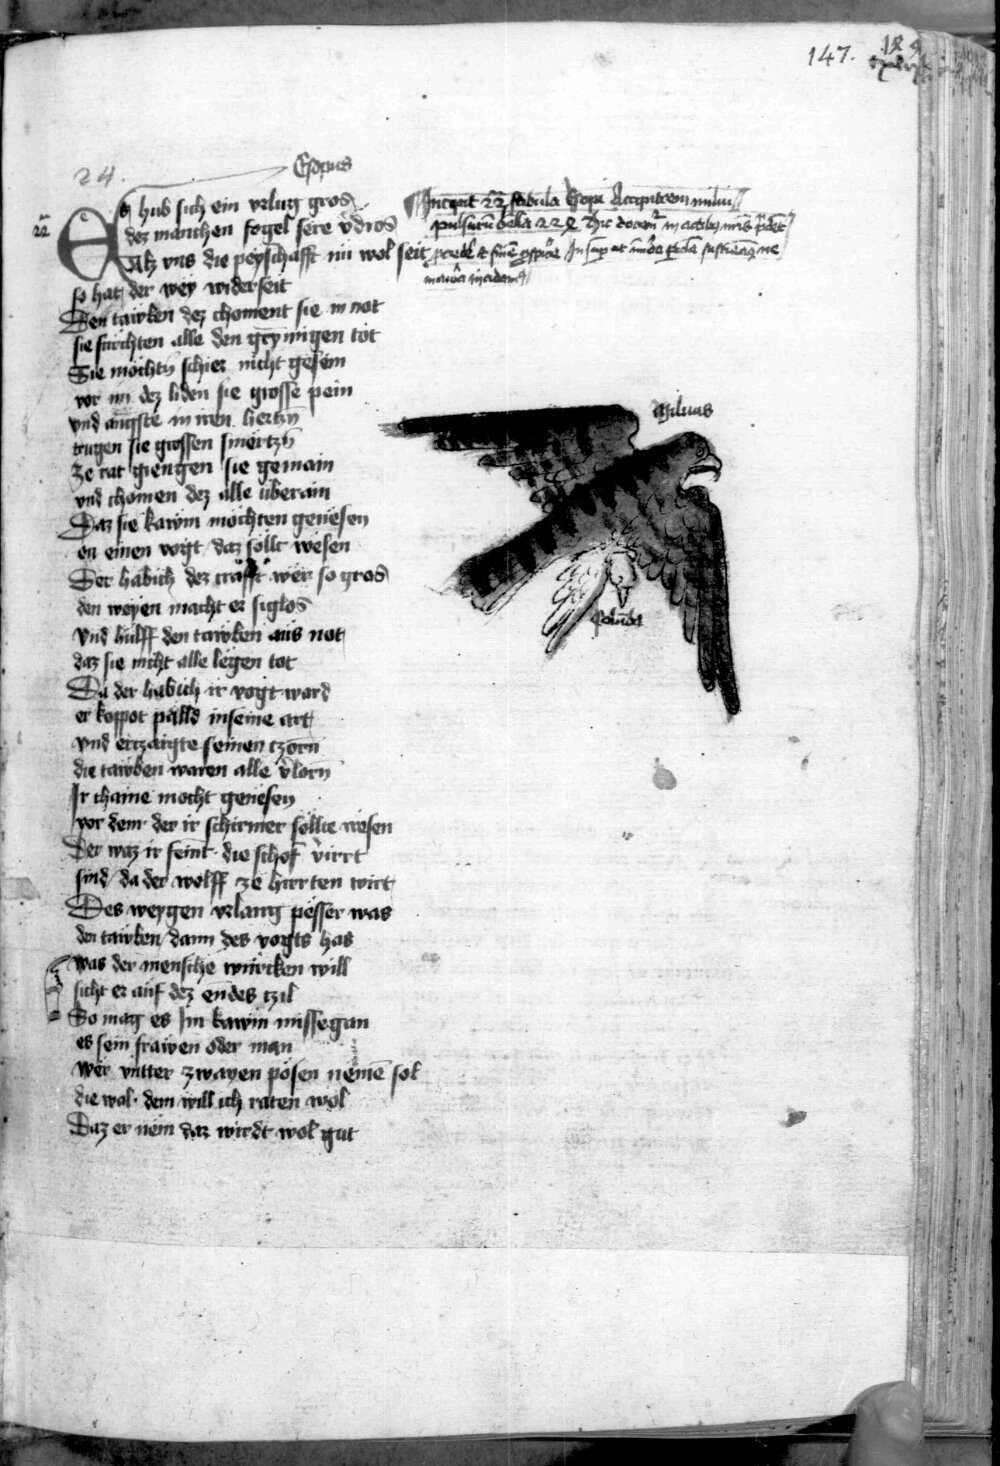 147.
24.
Esopus
Es hub sich ein vrlug gros
dez manchen fogel sere v̉dros
Alz vns die peyschafft nü wol seit
so hat der wey widerseit
Den tawben dez choment sie in not
sie fürchten alle den grymigen tot
Sie mochtn̄ schier nicht gesein
vor im dez liden sie grosse pein
vnd angste in iren hertzn̄
trugen sie grossen smertzn̄
ze rat giengen sie gemain
vnd chomen dez alle überain
Daz sie kawm mochten genesen
on einen vogt daz sollt wesen
Der habich dez crafft wer so gros
den weyen macht er siglos
vnd hulff den tawben aus not
daz sie nicht alle legen tot
Da der habich ir vogt ward
er koppot palld in seine art
vnd erzaigte seinen tzorn
die tawben waren alle v̉lorn
Ir chaine mocht genesen
vor dem der ir schirmer sollte wesen
Der waz ir feint die schof v̉irrt
sind da der wolff ze hirten wirt
Des weygen vrlaug pesser was
den tawben dann des vogts has
was der mensche würcken will
sicht er auf dez endes tzil
So mag es Im kawm missegan
es sein frawen oder man
wer vntter zwayen pösen nemē sol
die wal dem will ich raten wol
Daz er nem daz wirdt wol gut
22
Incipit 22 fabula Esopi Accipitrem milui
pulsurū bella
Miluus
Colūba